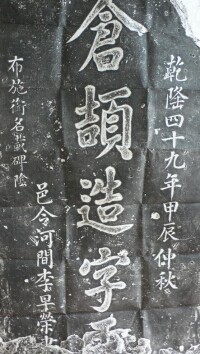 乾隆四十九年甲辰仲秋
倉頡造字
邑令河間李早榮
布施銜名載碑陰